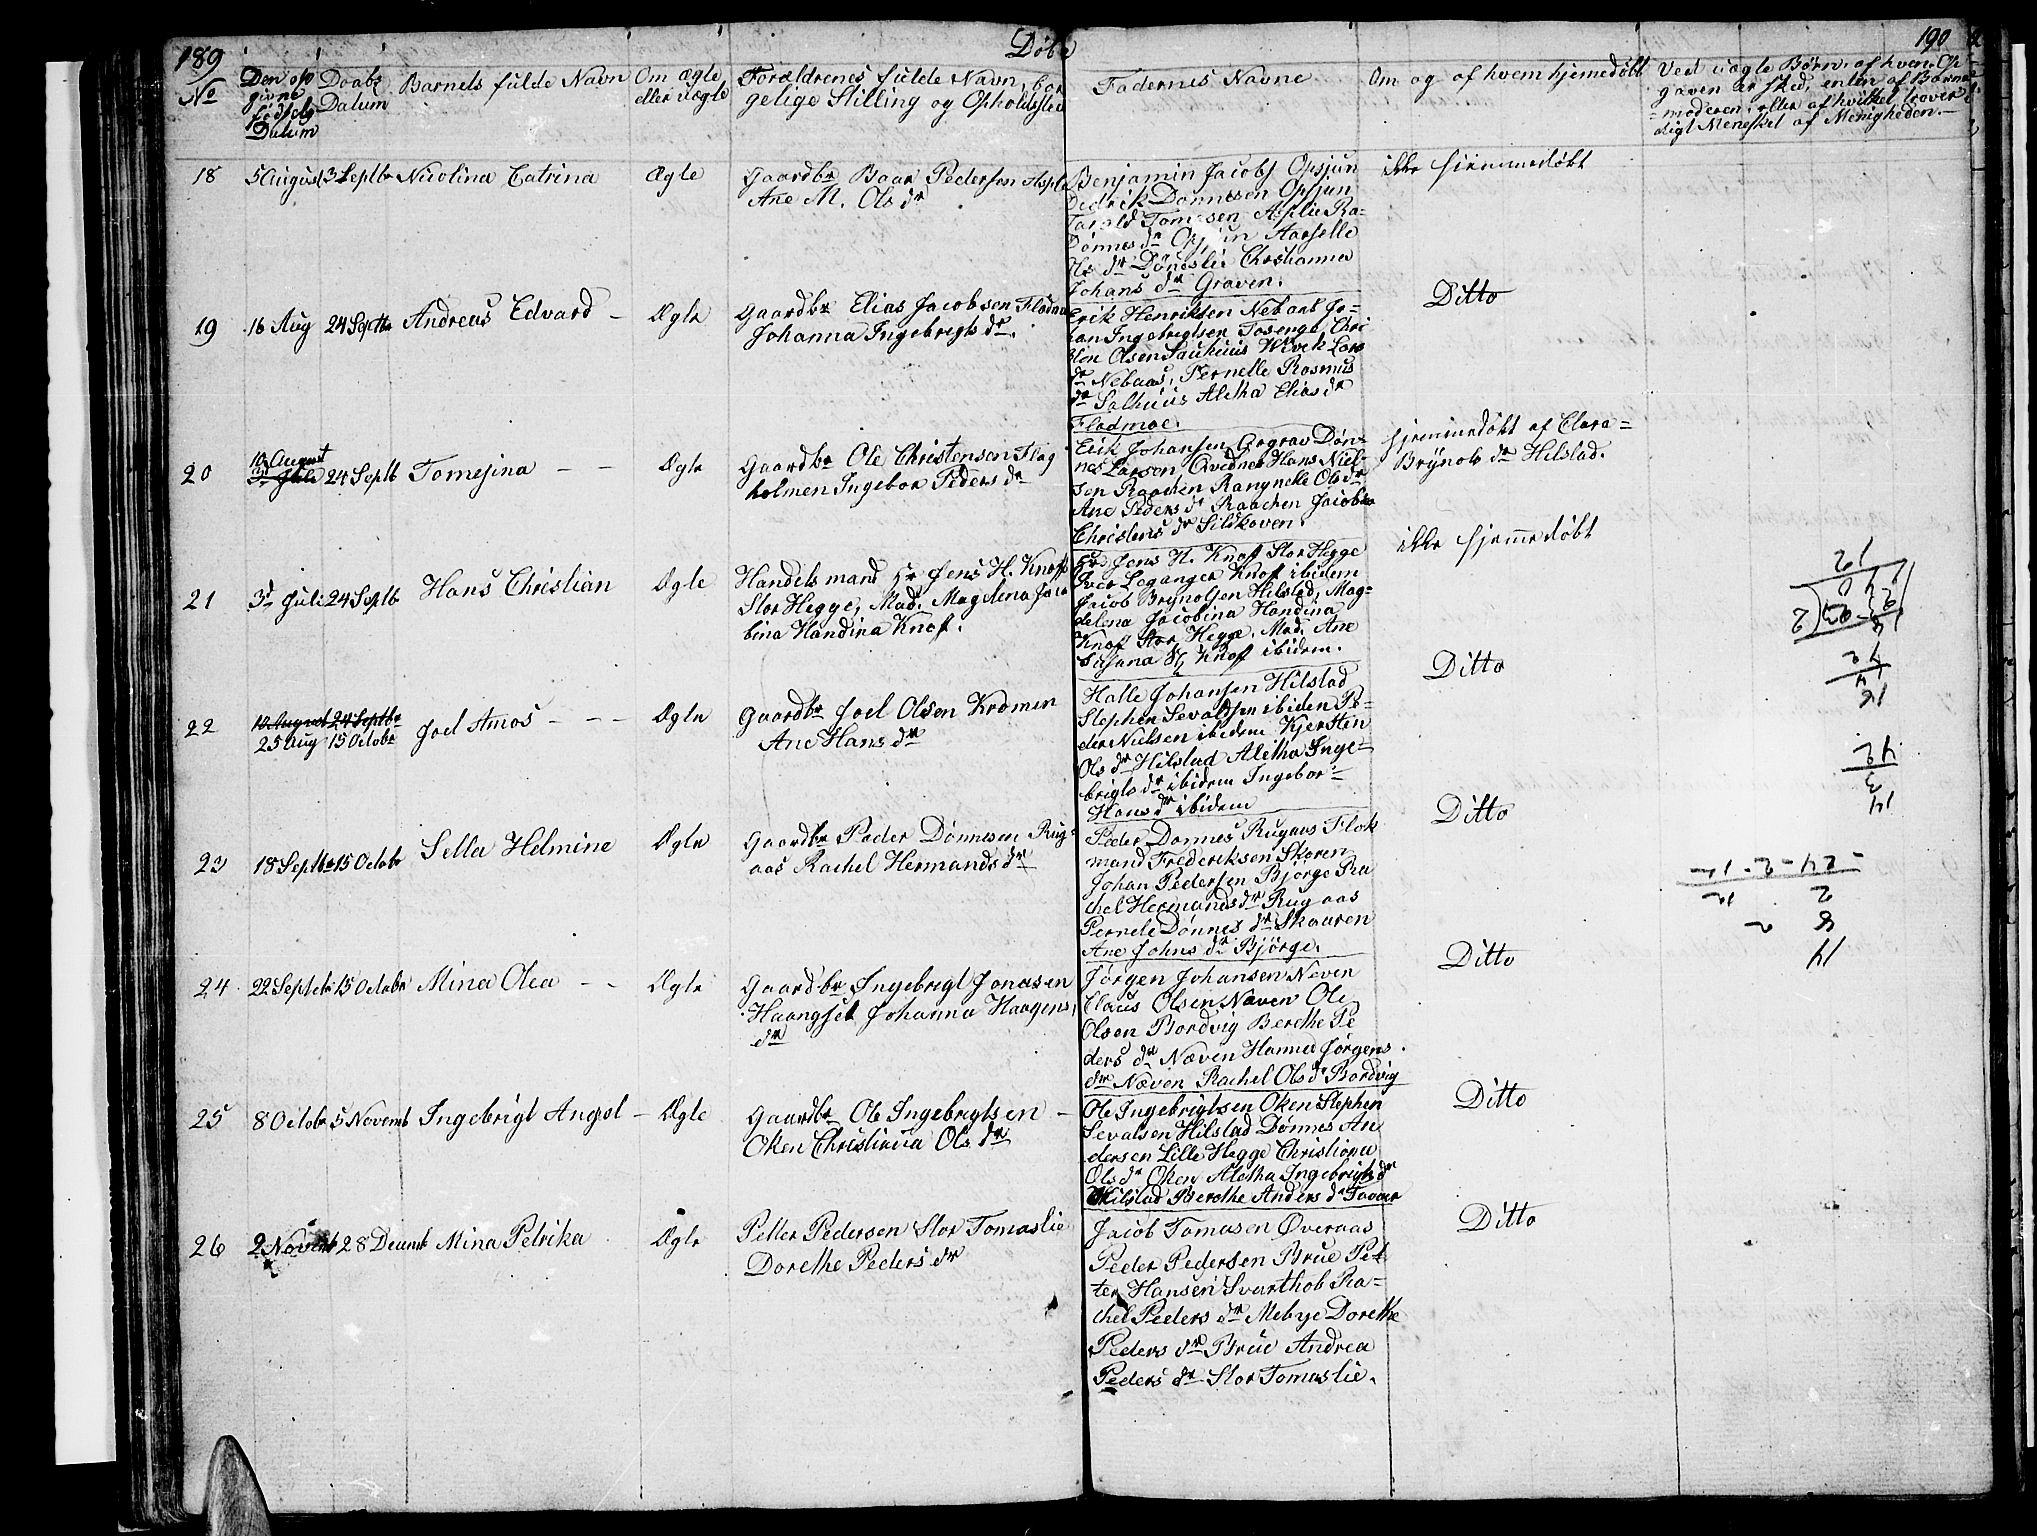 189
Døbte
190
No
Den op
givne
Fødsels
Datum
Daabs
Datum
Barnets fulde Navn
Om ægte
eller uægte
Forældrenes fulde Navn, bor
gelige Stilling og Opholdssted
Fadernes Navne
Om og af hvem hjemedøbt
Ved uægte Børn, af hvem Op-
gaven er sked, enten af Barne
=moderen eller af hvilket trover
digt Meneske af Menigheden.
18
5 August
3 Septbr
Nicolina Catrina
Ægte
Gaardbr Baar Pedersen Asplie
Ane M. Ols dr
Benjamin Jacobs Opsjun
Dedrik Dønnesen Opsjun
Tomesen Asplie Ra=
Dønnes dr Opsjun
Ols dr Døneslie Christianna
Johans dr Graven.
ikke hjemmedøbt
19
16 Aug
24 Septbr
Andreas Edvard -
Ægte
Gaardbr Elias Jacobsen Flodmo
Johanna Ingebrigts dr.
Erik Henriksen Nebaas Jo=
han Ingebrigtsen Tosenge, Chri
sten Olsen Lars
dr Nebaas, Pernelle Rasmus
dr Salhuus Aletha Elias dr
Flodmoe.
Ditto
20
10 August
24 Septb
Tomesina - -
Ægte
Gaardbr Ole Christensen Flag
holmen Ingebor Peders dr
Erik Johansen Døn-
nes Larsen Hans Niel-
sen Raachen Ols dr
Ane Peders dr Raachen Jacobea
Christens dr Sildhoven.
hjemmedøbt af Clara=
Brynols dr Hilstad.
21
3d Juli
24 Septb
Hans Christian
Ægte
Handelsmand Hr Jens H. Knoff
Stor Hegge, Mad. Magdlena Jaco
bina Handina Knof.
Hr Jens H. Knoff Stor Hegge
Iver Leganger Knoff ibidem
Jacob Brynolsen Hilstad, Mag-
delena Jacobina Handina
Knoff Stor Hegge, Mad. Ane
Susana Knoff ibidem.
ikke hjemmedøbt
22
12 August 24 Septbr
25 Aug
15 Octobr
Joel Amos - - -
Ægte
Gaardbr Joel Olsen Kromen
Ane Hans dr
Halle Johansen Hilstad
Stephen Sevaldsen ibidem Pe-
der Nielsen ibidem Kjersten
Ols dr Hilstad Aletha Inge-
brigts dr ibidem Ingebor=
Hans dr ibidem
Ditto
23
18 Septbr
15 Octobr
Sella Helmine
Ægte
Gaardbr Peder Dønnesen Rug-
aas Rachel Hermands dr
Peder Dønnes Rugaas Flok
mand Frederiksen Skoren
Johan Pedersen Bjørge Ra
chel Hermands dr Rugaas
Pernele Dønnes dr Skaaren
Ane Johns dr Bjørge.
Ditto
24
22 Septbr
15 Octobr
Mina Olea - -
Ægte
Gaardbr Ingebrigt Jonasen
Haangset Johanna Haagens
dr
Jørgen Johansen Næven
Claus Olsen Næven Ole
Olsen Bordvig Berethe Pe
ders dr Næven Hanna Jørgens
dr Næven Rachel Ols dr Bordvig
Ditto
25
8 Octobr
5 Novemb
Ingebrigt Angel -
Ægte
Gaardbr Ole Ingebrigtsen -
Oken Christiana Ols dr
Ole Ingebrigtsen Oken Stephen
Sevalsen Hilstad Dønnes An
dersen Lille Hegge Christiana
Ols dr Oken Aletha Ingebrigts dr
Hilstad Berethe Anders dr
Ditto
26
2 Novemb
28 Decemb
Mina Petrika
Ægte
Petter Pedersen Stor Tomaslie
Dorethe Peders dr
Jacob Tomasen Øveraas
Peder Pedersen Brue Pet
ter Hansen Svarthob Ra-
chel Peders dr Mebye Dorethe
Peders dr Brue Andrea
Peders dr Stor Tomaslie.
Ditto